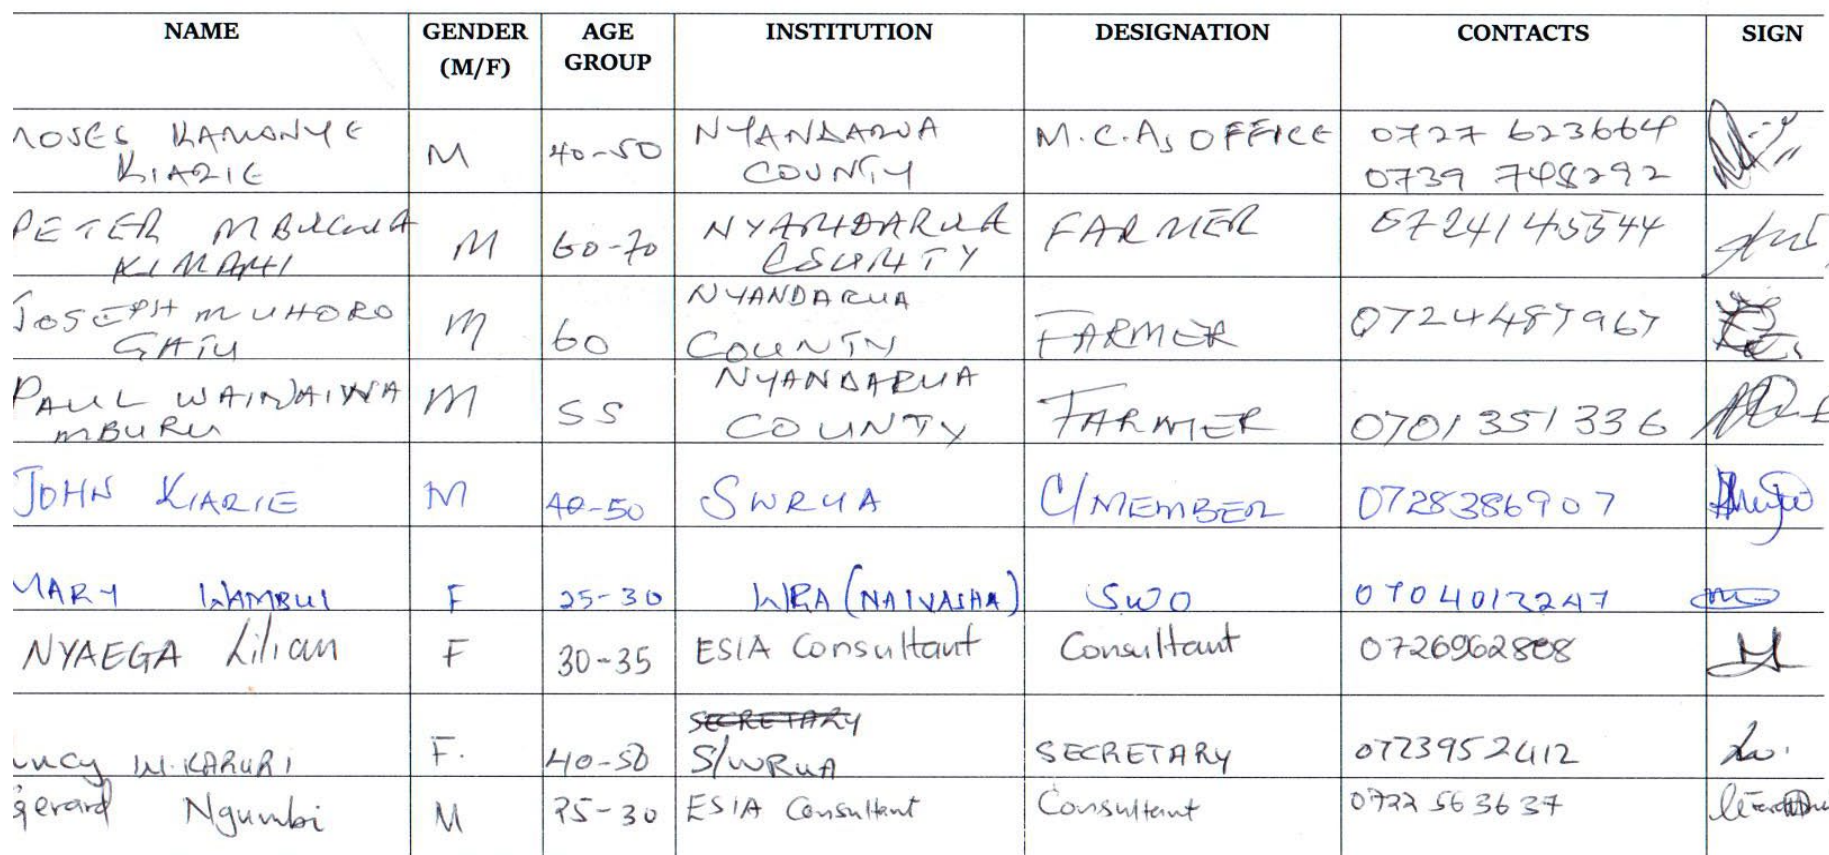 NAME GENDER (M/F) AGE GROUP INSTITUTION DESIGNATION CONTACTS SIGN
MOSES KAMONYE KIARIE M 40-50 NYANDARUA COUNTY M.C.As OFFICE 0727 623664 0739 748292
PETER KIMANI M 60-70 NYANDARUA COUNTY FARMER 0724145544
JOSEPH MUHORO GATU M 60 NYANDARUA COUNTY FARMER 0724487967
PAUL WAINAINA MBURU M 55 NYANDARUA COUNTY FARMER 0701351336
JOHN KIARIE M 40-50 SWRUA C/MEMBER 0728386907
MARY WAMBUI F 25-30 WRA (NAIVASHA) SWO 0704013247
NYAEGA Lilian F 30-35 ESIA Consultant Consultant 0726962808
SECRETARY
W. KARURI F. 40-50 S/WRUA SECRETARY 0723952412
gerard Ngumbi M 25-30 ESIA Consultant Consultant 0722 563637